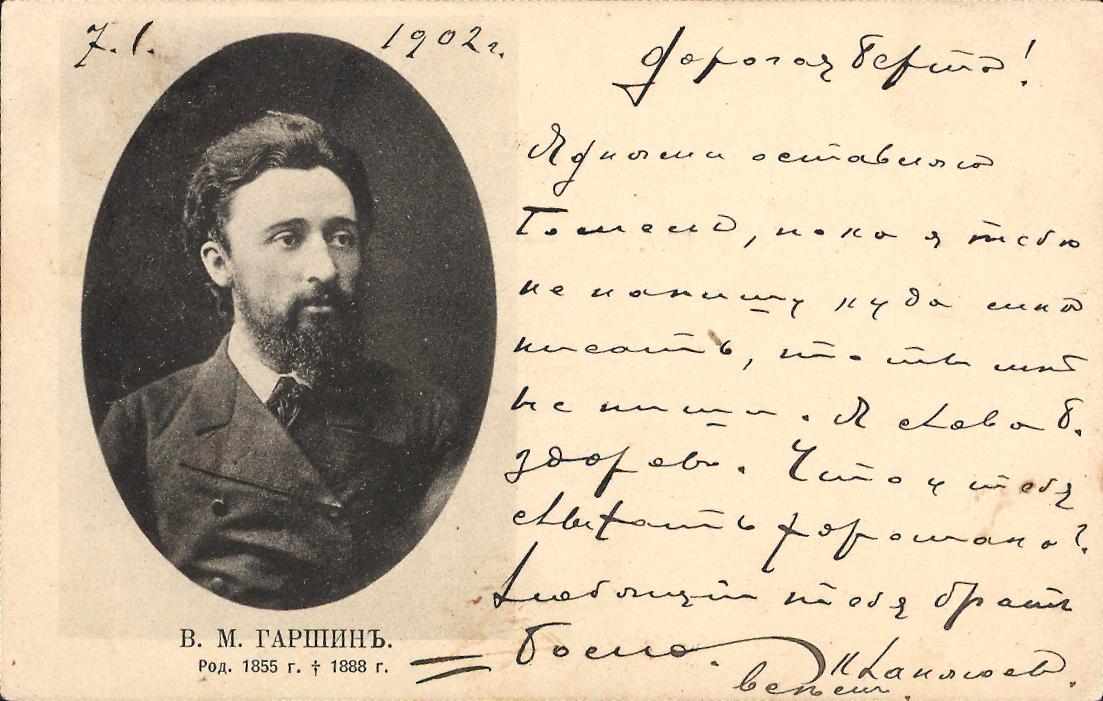 7. I. 1902 г.
Дорогая Берта!
Я дня оставляю
, пока я тебѣ
не напишу куда мнѣ
писать, то ты мнѣ
не пиши. Я слава Б.
здоровъ. Что у тебя
слыхать хорошаго?
Любящій тебя братъ
В. М. ГАРШИНЪ.
Род. 1855 г. † 1888 г.